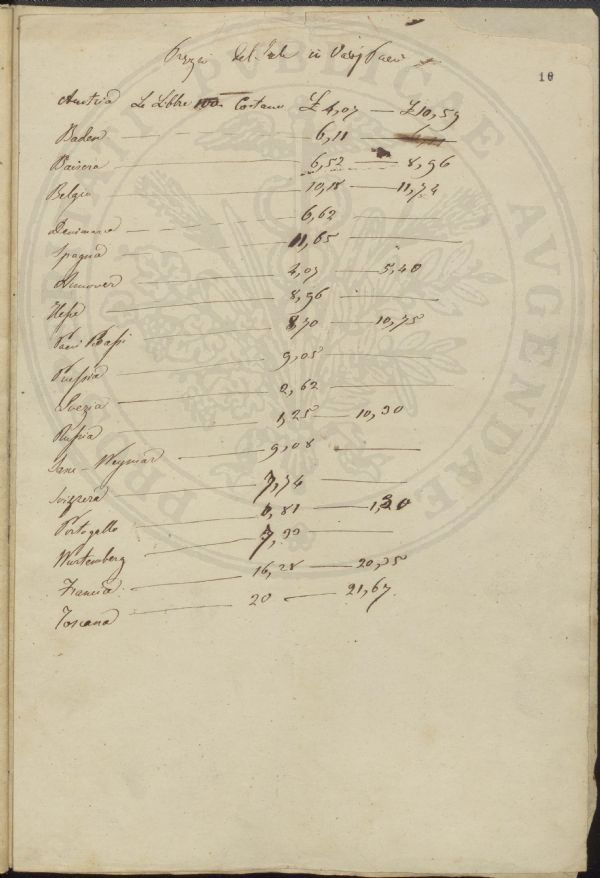 Prezzi del Sale in Varj Paesi
10
Austria Le Libbre 100 Costano £ 4,07 — £10,59
Baden — 6,11 — 6,11
Baviera — 6,52 — 8,96
Belgio — 10,18 — 11,74
Danimarca — 6,62 —
Spagna — 11,65 —
Annover — 4,07 — 5,40
Hesse — 8,96 —
Paesi Bassi — 8,70 — 10,75
Prussia — 9,05 —
Svezia — 2,62 —
Russia — 1,25 — 10,30
Saxe-Weymar — 9,08 —
Svizzera — 7,74 —
Portogallo — 0,81 — 1,30
Wurtemberg — 7,33 —
Francia — 16,28 — 20,35
Toscana — 20 — 21,67
PVBLICAE
AVGENDAE